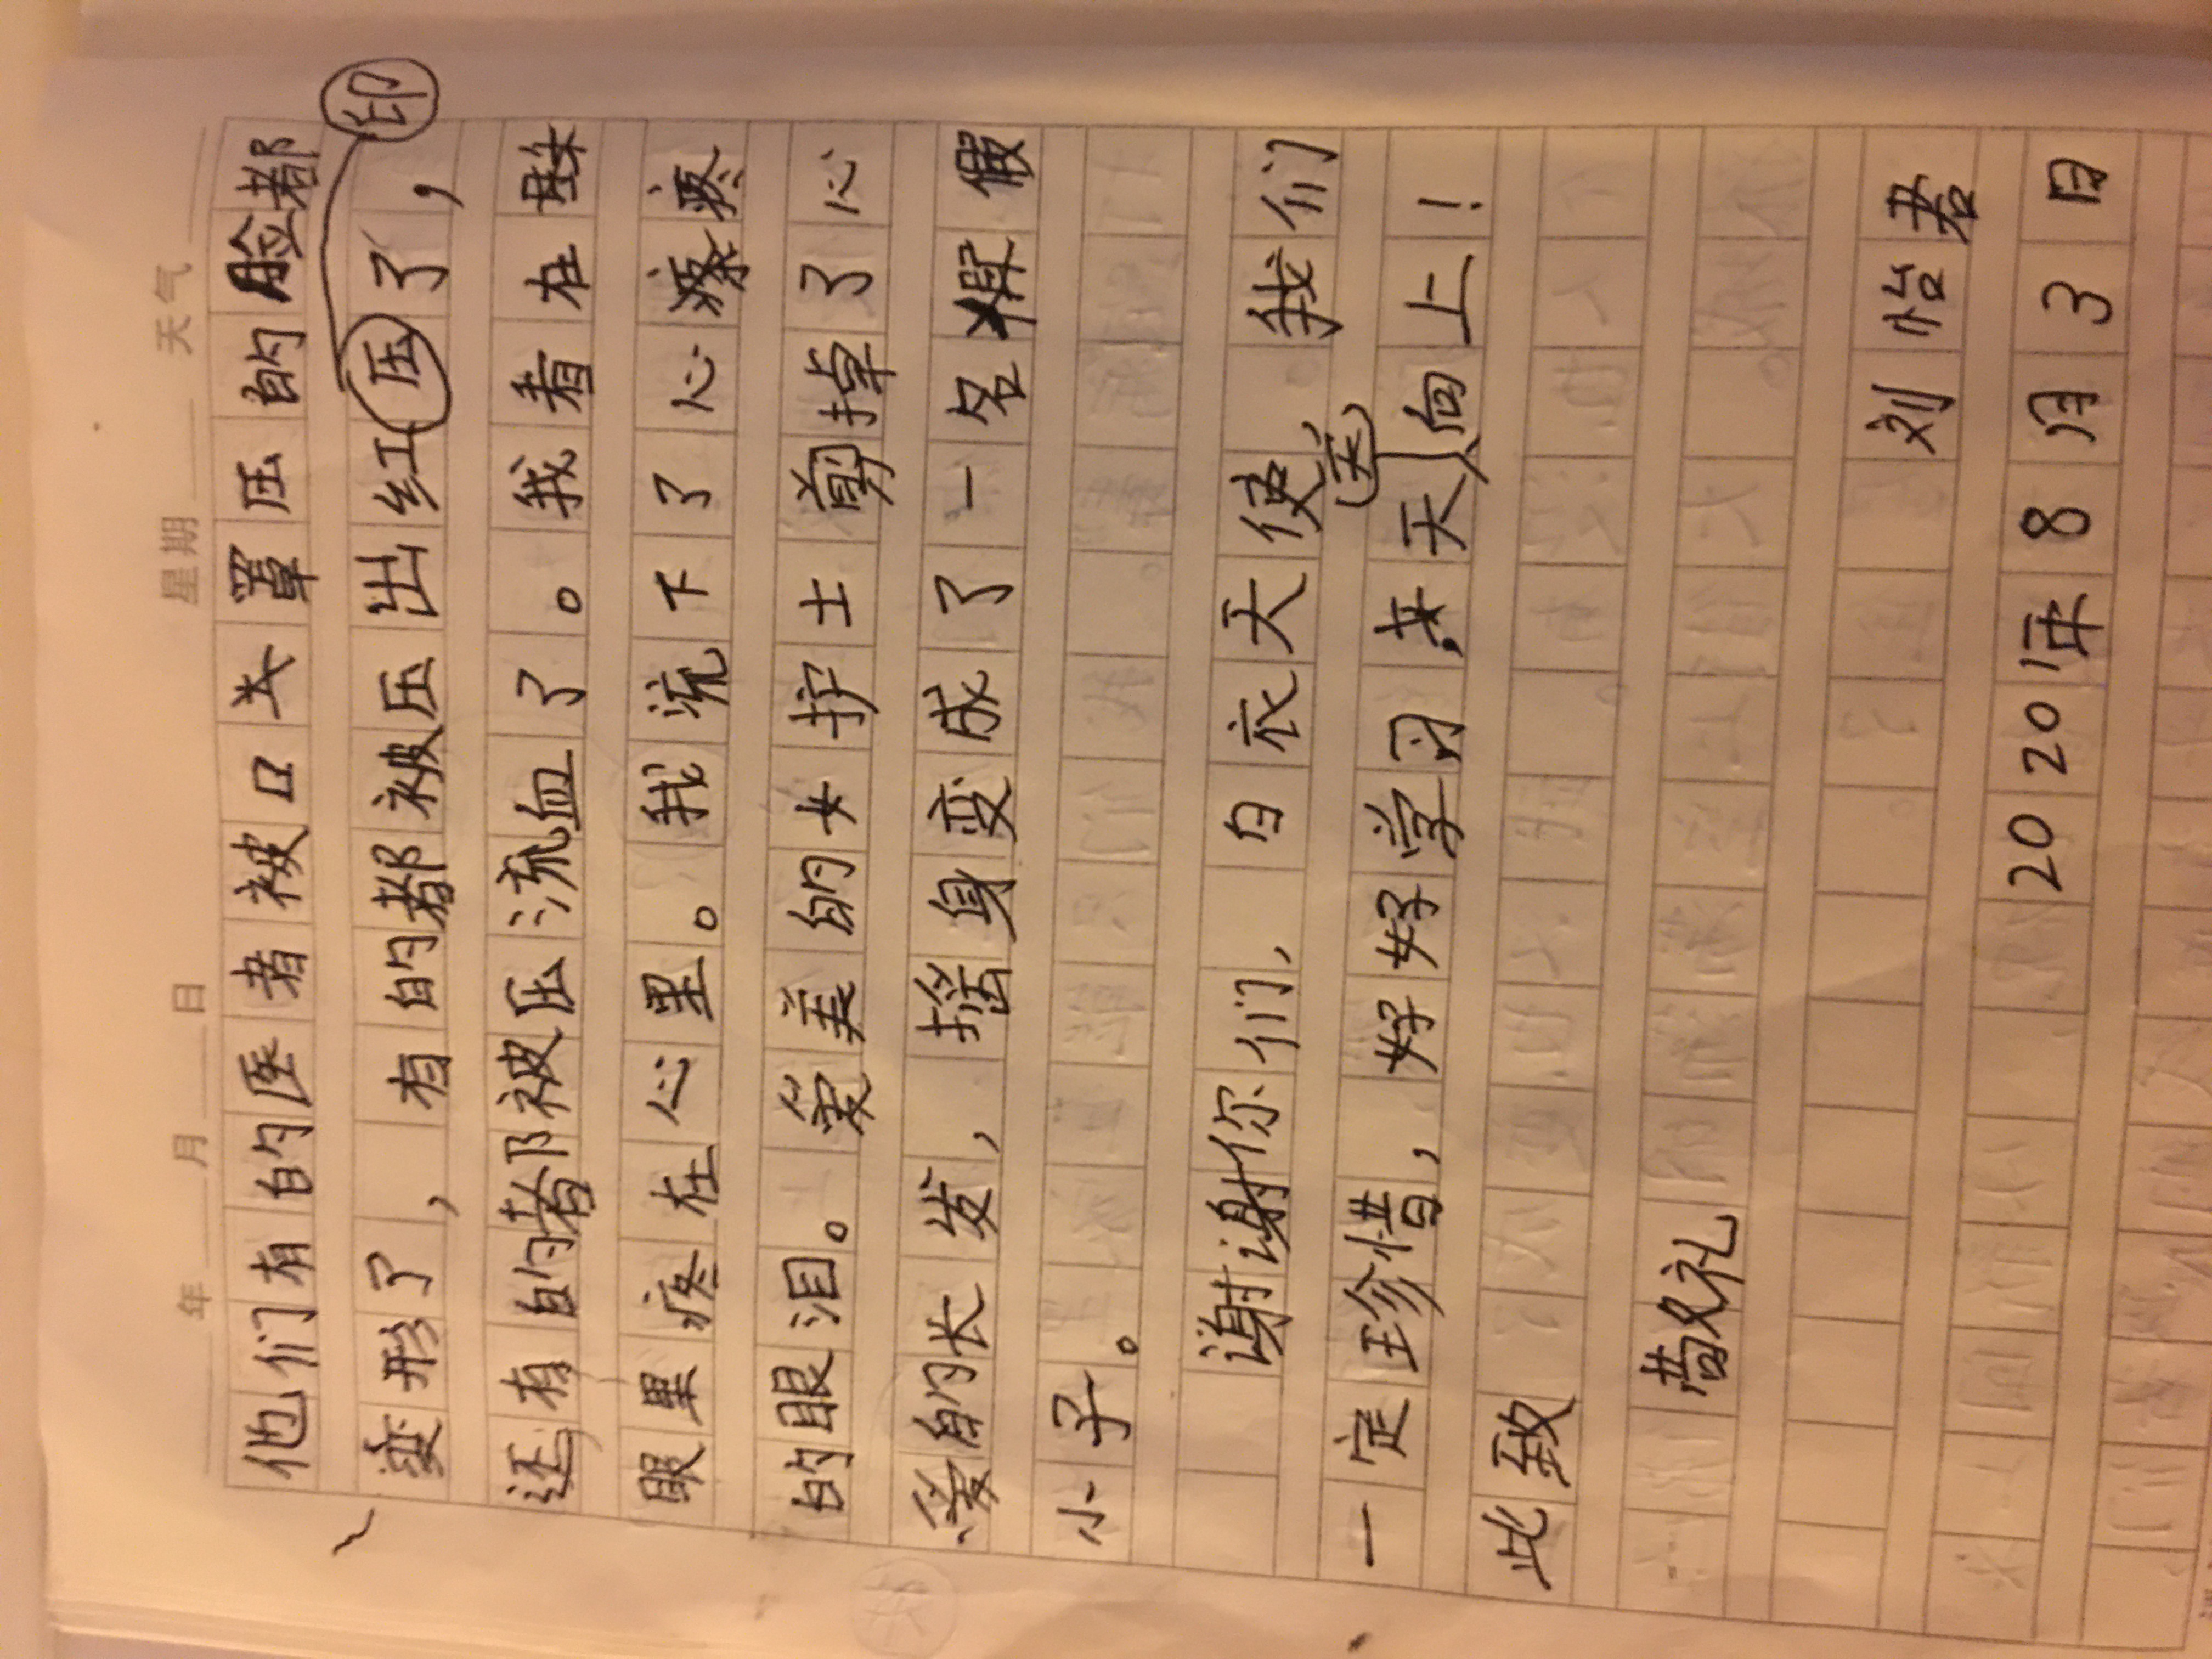 年 月 日 星期 天气
他们有的医者被口罩压的脸都
印
变形了，有的都被压出红压了，
还有的都被压流血了。我看在
眼里疼在心里。我流下了心疼
的眼泪。爱美的女护士剪掉了心
爱的长发，摇身变成了一名假
小子。
谢谢你们，白衣天使，我们
一定珍惜，好好学习天向上！
此致
敬礼
刘怡君
2020年8月3日